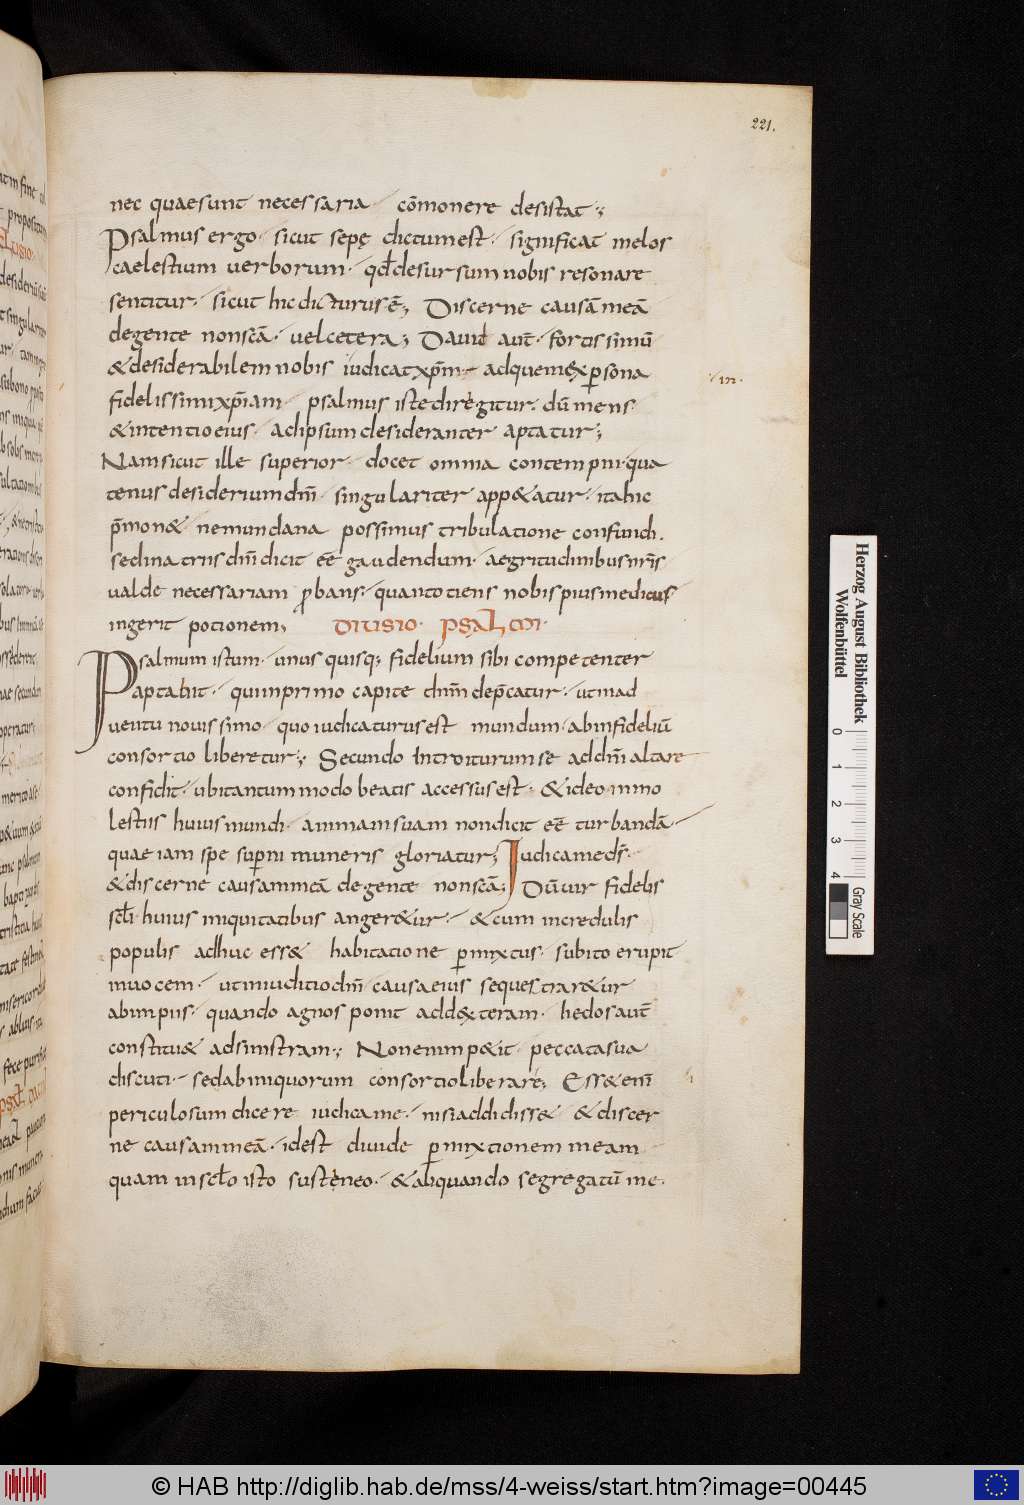 221.
nec quaesunt necessaria cōmonere desistat;
Psalmus ergo sicut sepę dictumest. significat melos
caelestium uerborum. qđdesursumnobis resonare
sentitur. sicut hicdicturusē; Discerne causāmeā
degente nonscā. uelcetera; Dauid aut̄. fortissimū
&desiderabilemnobis iudicatxp̄m. adquemexpersona
fidelissimixp̄iani. psalmus istedirigitur. dū mens
&intentioeius. adipsumdesideranter aptatur;
Namsicut ille superior. docet omnia contempni. qua
tenusdesideriumdn̄i singulariter app&atur. itahic
p̄mon& nemundana possimus tribulatione confundi.
sedinatriisdn̄idicit eē gaudendum. aegritudinibusnr̄is
ualde necessariam probans. quantotiens nobispiusmedicus
ingerit potionem; DIUISIO. PSALMI.
Psalmum istum. unus quisq; fidelium sibi competenter
aptabit. quiinprimo capite dn̄m dep̄catur. utinad
uentu nouissimo. quo iudicaturusest mundum. abinfideliū
consortio liberetur; Secundo Introiturumse addn̄ialtare
confidit. ubitantummodo beatis accessusest. &ideo inmo
lestiis huiusmundi. animamsuam nondicit eē turbandā
quae iam spe supni muneris gloriatur; Iudicameds̄.
&discerne causammeā degente nonscā; Dūuir fidelis
scl̄i huius iniquitatibus anger&ur. &cum incredulis
populis adhuc ess& habitatione p̄mixtus. subito erupit
inuocem. utiniuditiodn̄i causaeius sequestrar&ur
abimpiis. quando agnos ponit add&xteram. hedosaut̄
constitu& adsinistram; Nonenimp&it peccatasua
discuti. sedabiniquorum consortioliberare; Ess&enī
periculosumdicere iudicame. nisiaddidiss& &discer
ne causammeā. idest diuide p̄mixtionem meam
quam inscl̄o isto sustineo. &aliquando segregatū me.
in.
Herzog August Bibliothek
Wolfenbüttel
0 1 2 3 4
Gray Scale
© HAB http://diglib.hab.de/mss/4-weiss/start.htm?image=00445